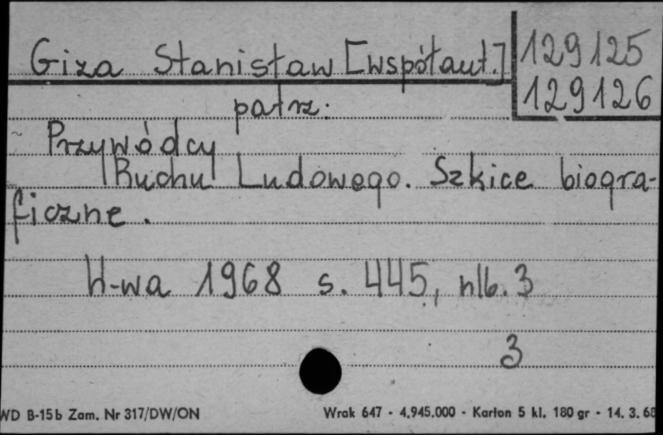 Giza Stanisław [współaut.]
129125
129126
patrz:
Przywódcy
Ruchu Ludowego. Szkice biogra-
ficzne.
W-wa 1968 s. 445, nlb. 3
3
WD B-15b Zam. Nr 317/DW/ON
Wrak 647 - 4.945.000 - Karton 5 kl. 180 gr - 14. 3. 68